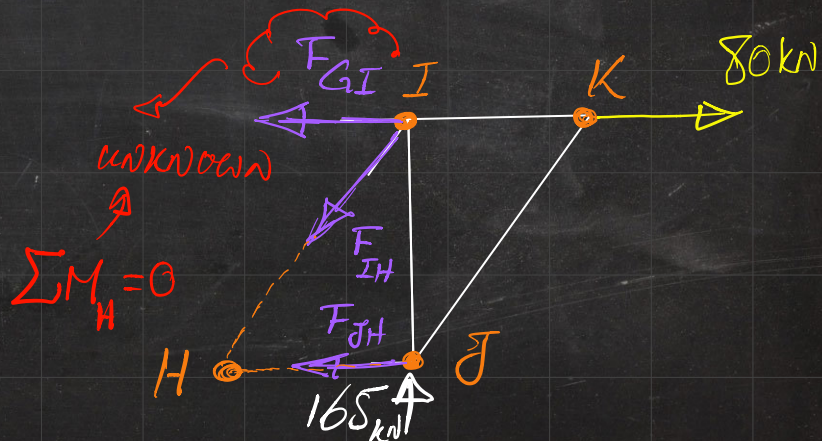 F_GI
I
K
80 kN
UNKNOWN
F_IH
ΣM_H=0
F_JH
H
J
165 kN